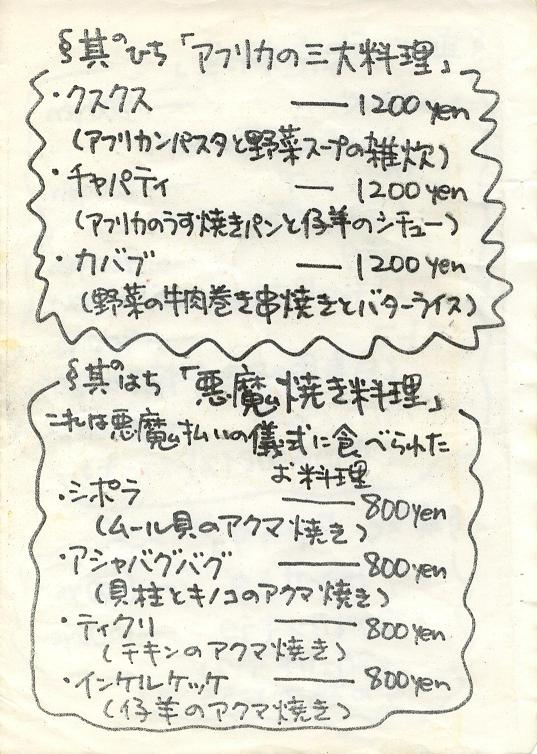 §其のひち「アフリカの三大料理」
・クスクス ―― 1200yen
(アフリカンパスタと野菜スープの雑炊)
・チャパティ ― 1200yen
(アフリカのうす焼きパンと仔羊のシチュー)
・カバブ ―― 1200yen
(野菜の牛肉巻き串焼きとバターライス)
§其のはち「悪魔焼き料理」
これは悪魔払いの儀式に食べられた
お料理
・シポラ ―― 800yen
(ムール貝のアクマ焼き)
・アシャバグバグ ―― 800yen
(貝柱とキノコのアクマ焼き)
・ティクリ ―― 800yen
(チキンのアクマ焼き)
・インケルケッケ ―― 800yen
(仔羊のアクマ焼き)